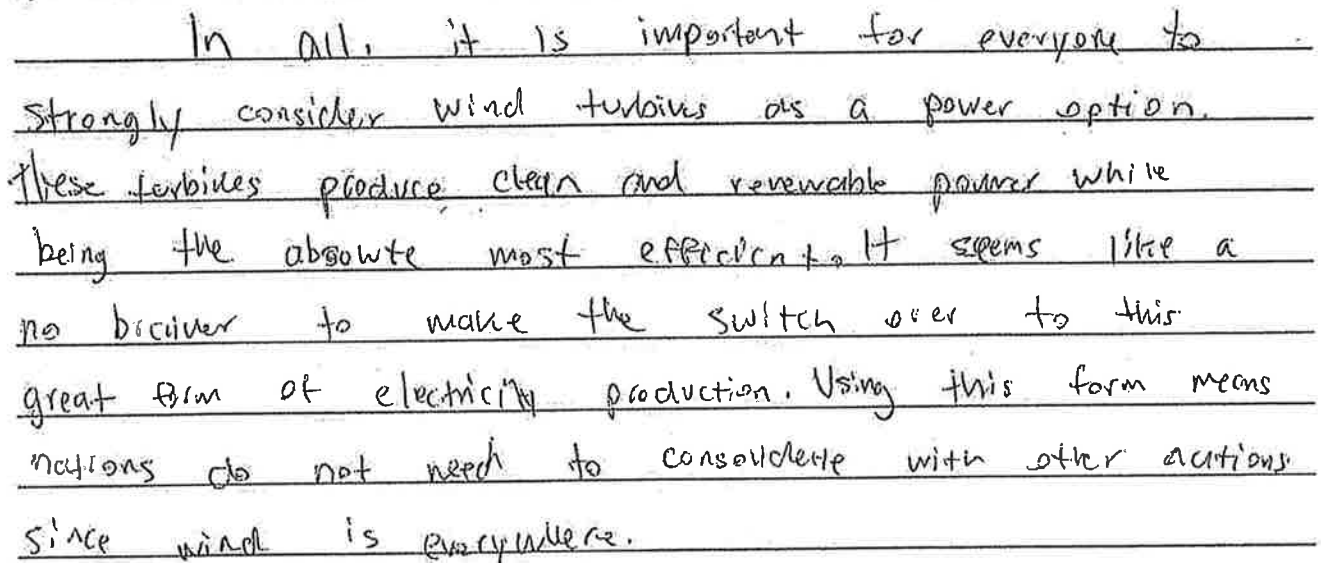 In all, it is important for everyone to
strongly consider wind turbines as a power option.
These turbines produce clean and renewable power while
being the absolute most efficient. It seems like a
no brainer to make the switch over to this
great form of electricity production. Using this form means
nations do not need to consolidate with other nations
since wind is everywhere.